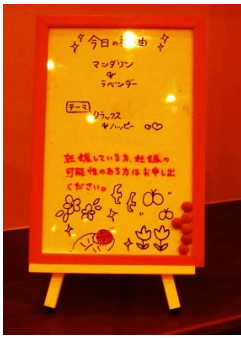 今日の精油
マンダリン
&
ラベンダー
テーマ
リラックス
&ハッピー
妊娠している方、妊娠の
可能性のある方はお申し出
ください。